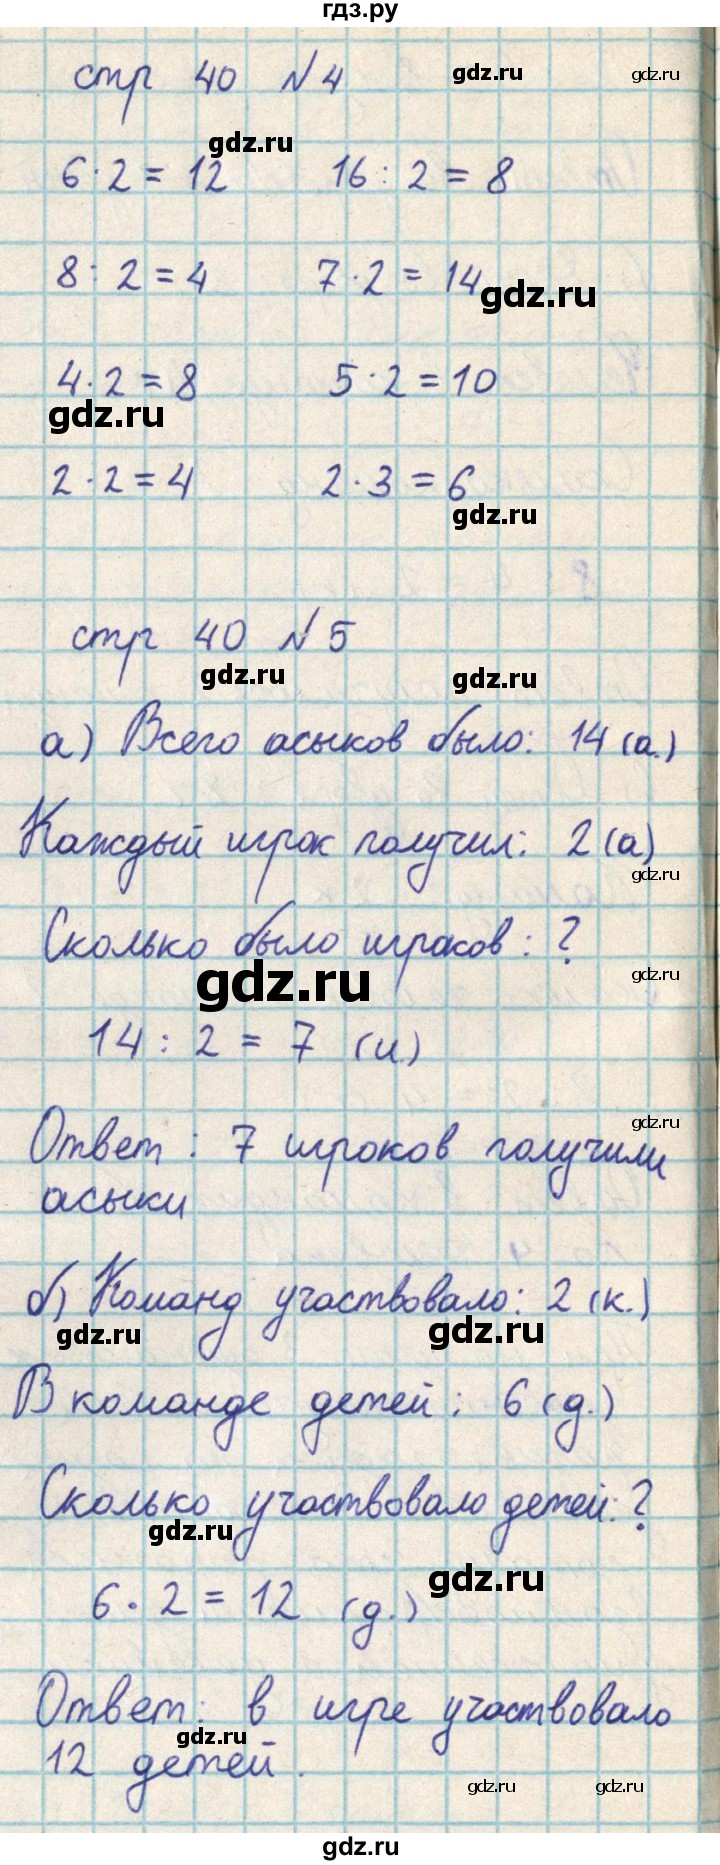 гдз.ру
стр 40 №4
gdz.ru
gdz.ru
gdz.ru
6·2=12 16:2=8
8:2=4 7·2=14
gdz.ru
4·2=8 5·2=10
gdz.ru
2·2=4 2·3=6
gdz.ru
стр 40 №5
gdz.ru
gdz.ru
а) Всего асыков было: 14(а.)
Каждый игрок получил: 2(а)
gdz.ru
Сколько было игроков: ?
gdz.ru
gdz.ru
14:2=7 (и.)
gdz.ru
Ответ: 7 игроков получили
асыки
б) Команд участвовало: 2(к.)
gdz.ru
gdz.ru
В команде детей: 6(д.)
Сколько участвовало детей: ?
gdz.ru
gdz.ru
6·2=12 (д.)
Ответ: в игре участвовало
gdz.ru
12 детей.
gdz.ru
gdz.ru
gdz.ru